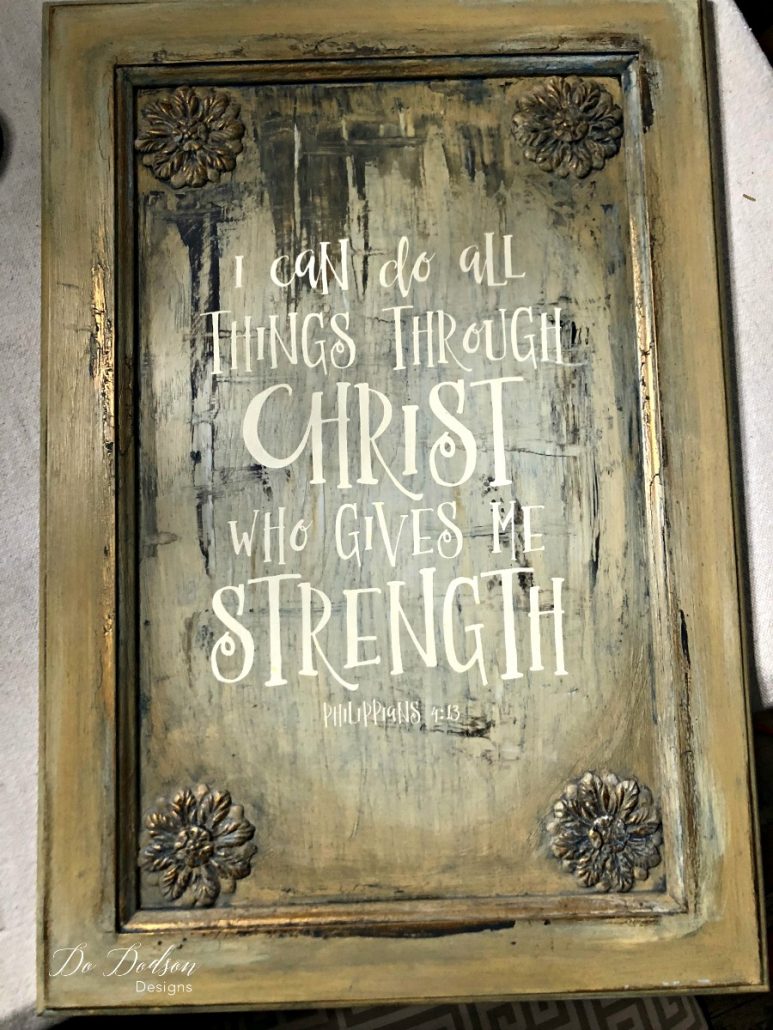 I CAN do ALL
THINGS THROUGH
CHRIST
WHO GIVES ME
STRENGTH
PHILIPPIANS 4:13
Do Dodson
Designs